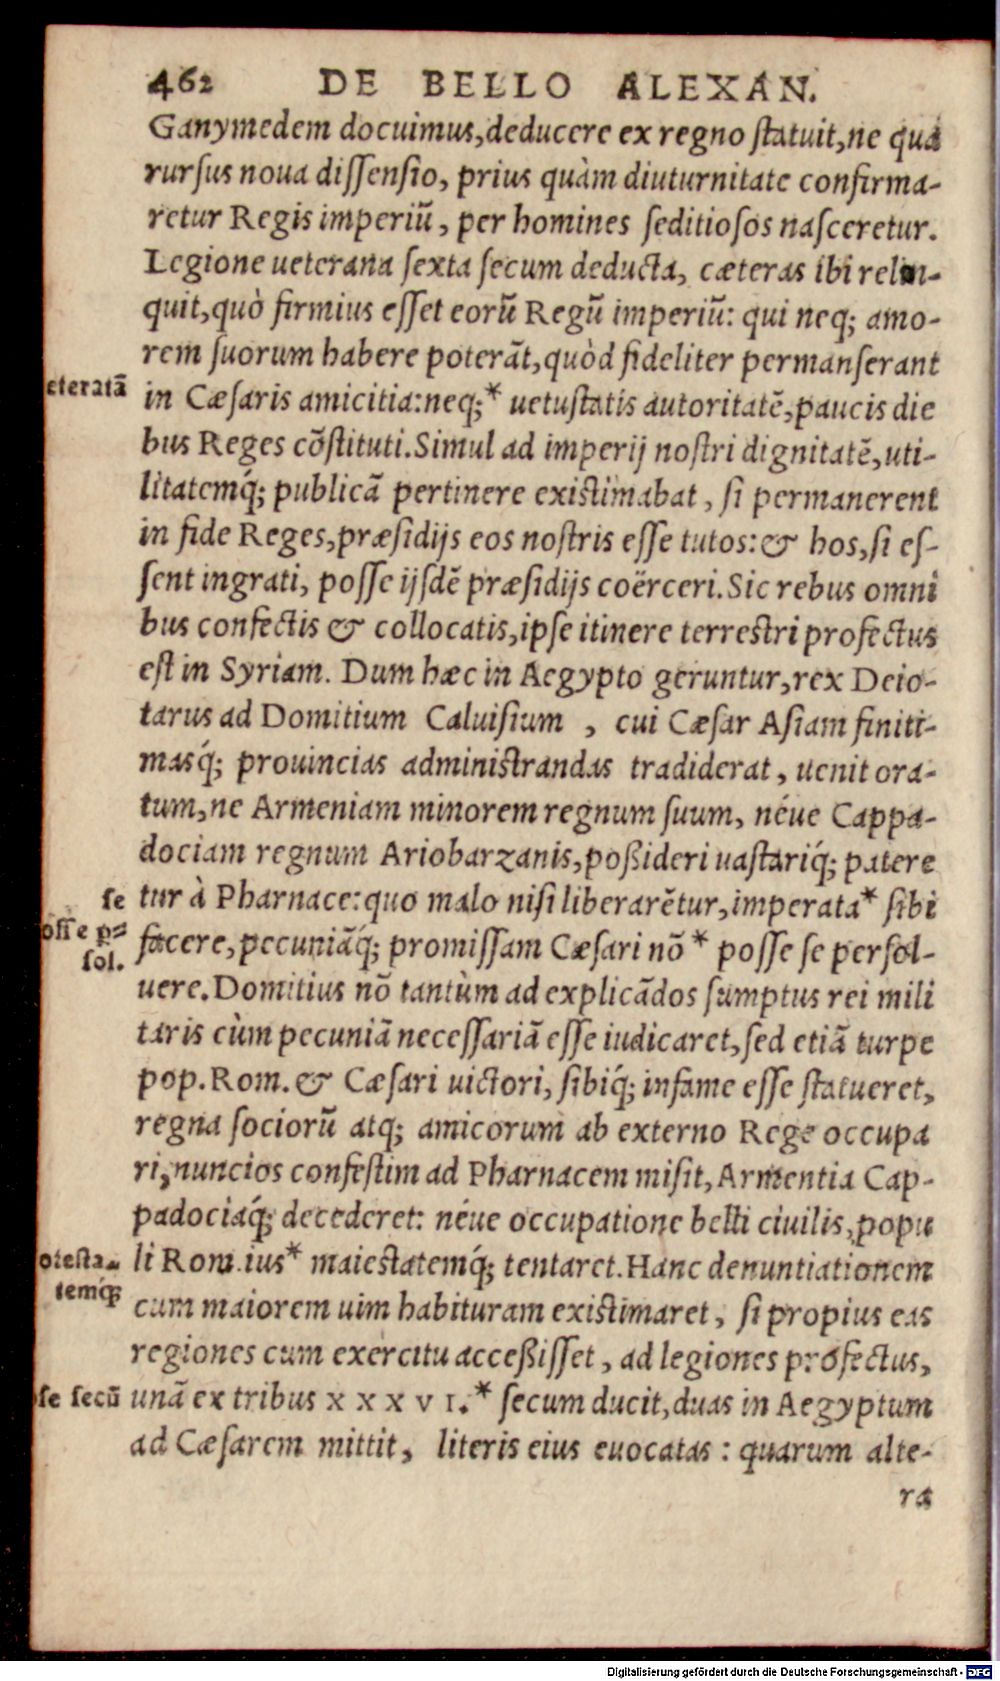 462 DE BELLO ALEXAN.
Ganymedem docuimus,deducere ex regno ſtatuit,ne qua
rurſus noua diſſenſio, prius quàm diuturnitate confirma-
retur Regis imperiũ, per homines ſeditioſos naſceretur.
Legione ueterana ſexta ſecum deducta, cæteras ibi relin-
quit,quò firmius eſſet eorũ Regũ imperiũ: qui neq; amo-
rem ſuorum habere poterãt,quòd fideliter permanſerant
eteratã
in Cæſaris amicitia:neq;* uetuſtatis autoritatẽ,paucis die
bus Reges cõſtituti.Simul ad imperij noſtri dignitatẽ,uti-
litatemq́; publicã pertinere existimabat, ſi permanerent
in fide Reges,præſidijs eos nostris eſſe tutos:& hos,ſi eſ-
ſent ingrati, poſſe ijſdẽ præſidijs coërceri.Sic rebus omni
bus confectis & collocatis,ipſe itinere terrestri profectus
eſt in Syriam. Dum hæc in Aegypto geruntur,rex Deio-
tarus ad Domitium Caluiſium , cui Cæſar Aſiam finiti-
masq́; prouincias administrandas tradiderat, uenit ora-
tum,ne Armeniam minorem regnum ſuum, néue Cappa-
dociam regnum Ariobarzanis,poßideri uastariq́; patere
se
tur à Pharnace:quo malo niſi liberarẽtur,imperata* ſibi
oſſe p=
facere,pecuniãq́; promiſſam Cæſari nõ* poſſe ſe perſol-
ſol.
uere.Domitius nõ tantùm ad explicãdos ſumptus rei mili
taris cùm pecuniã neceſſariã eſſe iudicaret,ſed etiã turpe
pop.Rom.& Cæſari uictori, ſibiq́; infame eſſe ſtatueret,
regna ſociorũ atq; amicorum ab externo Rege occupa
ri,nuncios confeſtim ad Pharnacem miſit,Armentia Cap-
padociaq́; decederet: néue occupatione belli ciuilis,popu
oteſta-
li Rom.ius* maiestatemq́; tentaret.Hanc denuntiationem
temq́;
cum maiorem uim habituram existimaret, ſi propius eas
regiones cum exercitu acceßiſſet, ad legiones profectus,
ſe ſecũ
unã ex tribus x x x v i.* ſecum ducit,duas in Aegyptum
ad Cæſarem mittit, literis eius euocatas : quarum alte-
ra
Digitalisierung gefördert durch die Deutsche Forschungsgemeinschaft - DFG